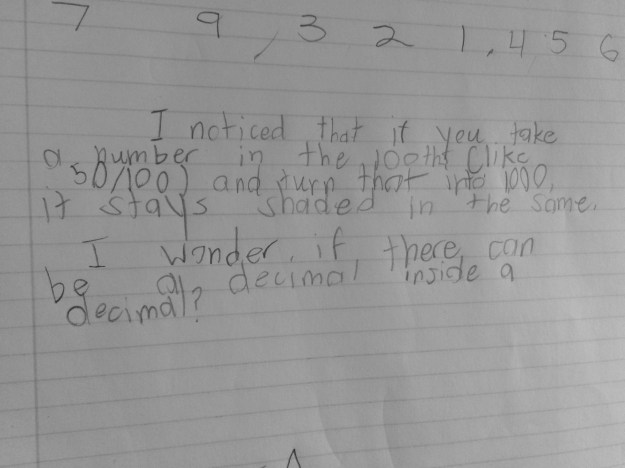 7 9, 3 2 1. 4 5 6
I noticed that if you take
a number in the 100ths (like
50/100) and turn that into 1000,
it stays shaded in the same.
I wonder if there can
be a decimal inside a
decimal?